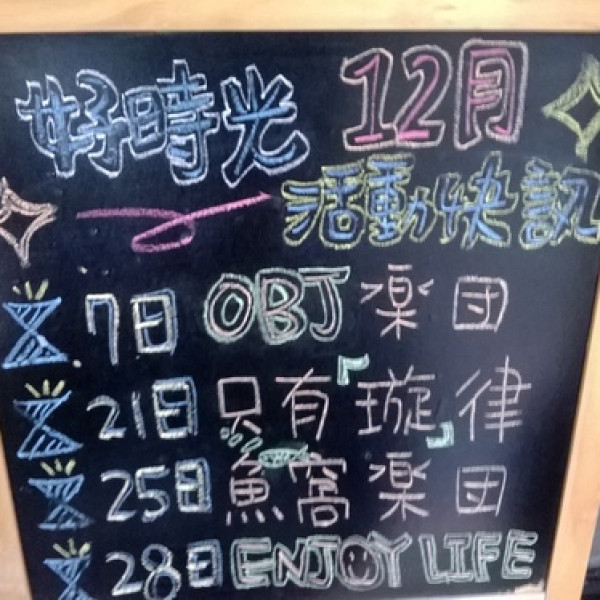 好時光 12月
活動快訊
7日 OBJ 楽団
21日 只有『璇律』
25日 魚窩楽団
28日 ENJOY LIFE